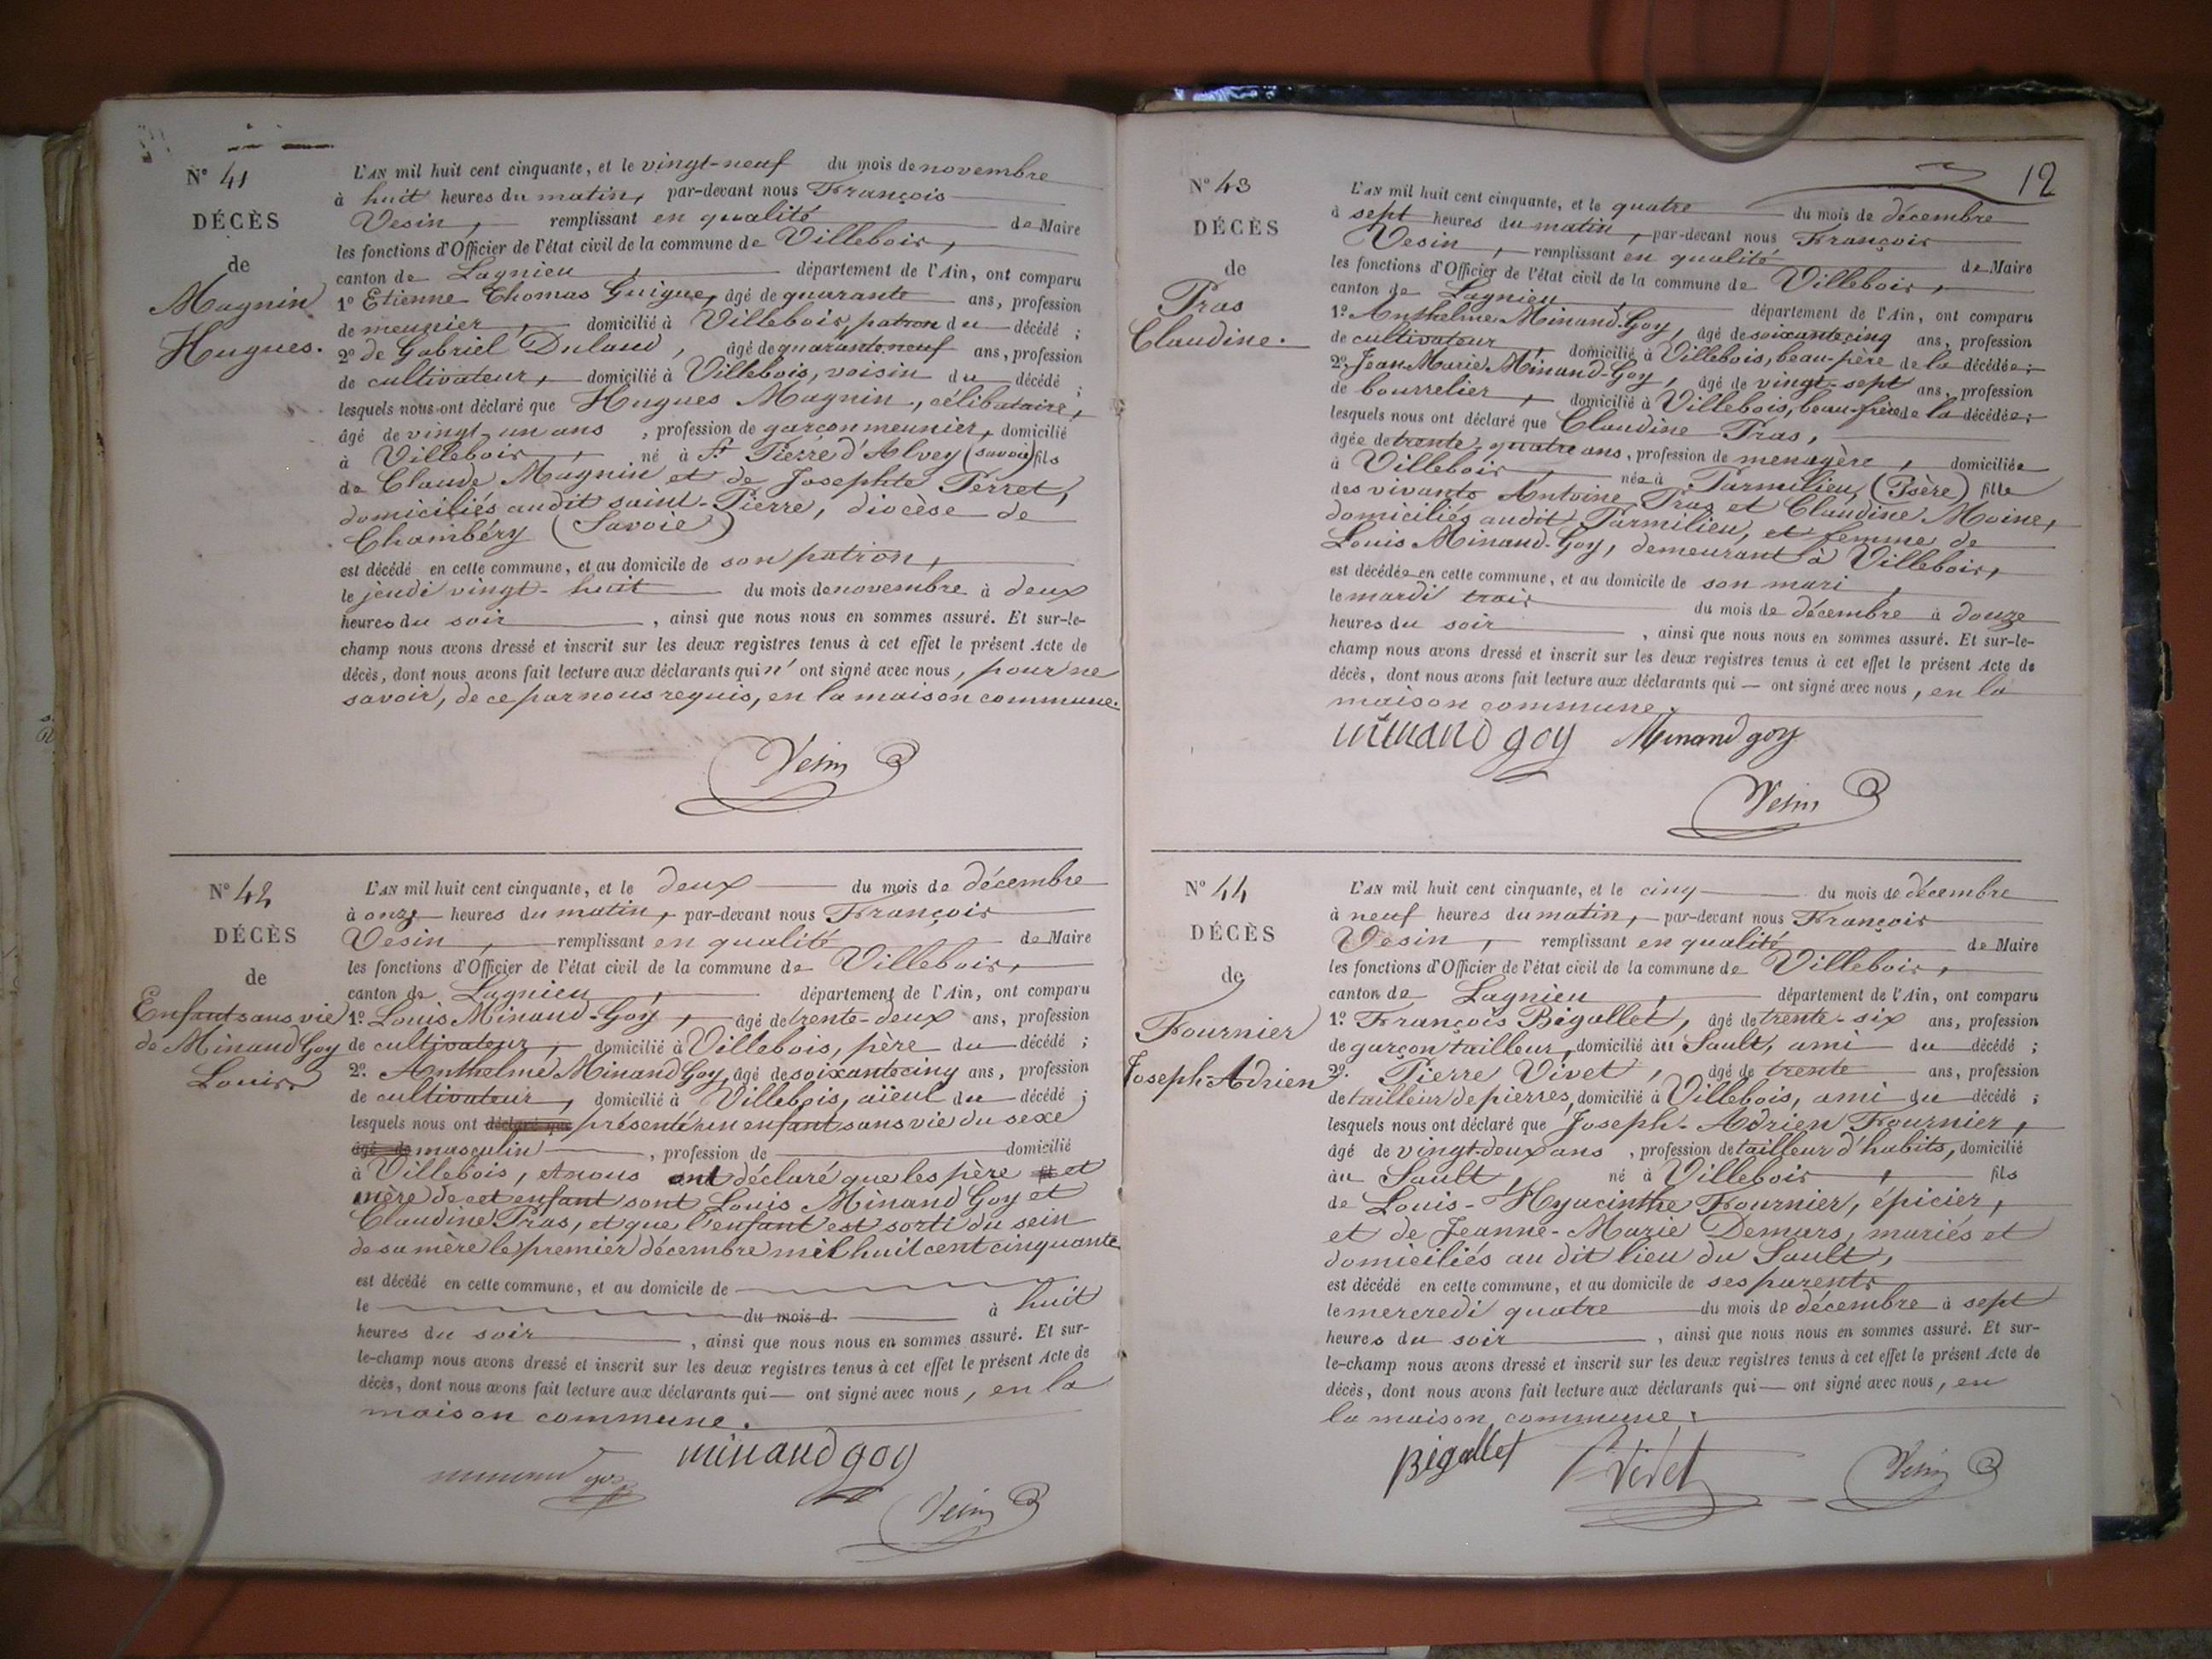 N° 41
DÉCÈS
de
Magnin
Hugues.
L'AN mil huit cent cinquante, et le vingt-neuf du mois de novembre
à huit heures du matin, par-devant nous François
Vesin, remplissant en qualité de Maire
les fonctions d'Officier de l'état civil de la commune de Villebois,
canton de Lagnieu, département de l'Ain, ont comparu
1° Etienne Thomas Guigue, âgé de quarante ans, profession
de meunier, domicilié à Villebois, patron du décédé ;
2° de Gabriel Dulaud, âgé de quarante neuf ans, profession
de cultivateur, domicilié à Villebois, voisin du décédé ;
lesquels nous ont déclaré que Hugues Magnin, célibataire,
âgé de vingt-un ans, profession de garçon meunier, domicilié
à Villebois, né à St Pierre d'Alvey (Savoie) fils
de Claude Magnin et de Josephte Perret,
domiciliés audit saint-Pierre, diocèse de
Chambéry (Savoie)
est décédé en cette commune, et au domicile de son patron,
le jeudi vingt-huit du mois de novembre à deux
heures du soir, ainsi que nous nous en sommes assuré. Et sur-le-
champ nous avons dressé et inscrit sur les deux registres tenus à cet effet le présent Acte de
décès, dont nous avons fait lecture aux déclarants qui n'ont signé avec nous, pour ne
savoir, de ce par nous requis, en la maison commune.
Vesin
N° 42
DÉCÈS
de
Enfant sans vie
de Minand Goy
Louis
L'AN mil huit cent cinquante, et le deux du mois de décembre
à onze heures du matin, par-devant nous François
Vesin, remplissant en qualité de Maire
les fonctions d'Officier de l'état civil de la commune de Villebois,
canton de Lagnieu, département de l'Ain, ont comparu
1° Louis Minand-Goy, âgé de trente-deux ans, profession
de cultivateur, domicilié à Villebois, père du décédé ;
2° Anthelme Minand Goy, âgé de soixante cinq ans, profession
de cultivateur, domicilié à Villebois, aïeul du décédé ;
lesquels nous ont déclaré que présenté un enfant sans vie du sexe
âgé de masculin, profession de domicilié
à Villebois, et nous ont déclaré que les père et
mère de cet enfant sont Louis Minand Goy et
Claudine Pras, et que l'enfant est sorti du sein
de sa mère le premier décembre mil huit cent cinquante
est décédé en cette commune, et au domicile de
le du mois d à huit
heures du soir, ainsi que nous nous en sommes assuré. Et sur-
le-champ nous avons dressé et inscrit sur les deux registres tenus à cet effet le présent Acte de
décès, dont nous avons fait lecture aux déclarants qui — ont signé avec nous, en la
maison commune.
minand goy minand goy
Vesin
12
N° 43
DÉCÈS
de
Pras
Claudine.
L'AN mil huit cent cinquante, et le quatre du mois de décembre
à sept heures du matin, par-devant nous François
Vesin, remplissant en qualité de Maire
les fonctions d'Officier de l'état civil de la commune de Villebois,
canton de Lagnieu, département de l'Ain, ont comparu
1° Anthelme Minand-Goy, âgé de soixante cinq ans, profession
de cultivateur, domicilié à Villebois, beau-père de la décédée ;
2° Jean-Marie Minand-Goy, âgé de vingt-sept ans, profession
de bourrelier, domicilié à Villebois, beau-frère de la décédée ;
lesquels nous ont déclaré que Claudine Pras,
âgée de trente-quatre ans, profession de menagère, domiciliée
à Villebois, née à Parmilieu, (Isère) fille
des vivants Antoine Pras et Claudine Moine,
domiciliés audit Parmilieu, et femme de
Louis Minand-Goy, demeurant à Villebois,
est décédée en cette commune, et au domicile de son mari,
le mardi trois du mois de décembre à douze
heures du soir, ainsi que nous nous en sommes assuré. Et sur-le-
champ nous avons dressé et inscrit sur les deux registres tenus à cet effet le présent Acte de
décès, dont nous avons fait lecture aux déclarants qui — ont signé avec nous, en la
maison commune.
minand goy Minand goy
Vesin
N° 44
DÉCÈS
de
Fournier
Joseph-Adrien
L'AN mil huit cent cinquante, et le cinq du mois de décembre
à neuf heures du matin, par-devant nous François
Vesin, remplissant en qualité de Maire
les fonctions d'Officier de l'état civil de la commune de Villebois,
canton de Lagnieu, département de l'Ain, ont comparu
1° François Bigallet, âgé de trente-six ans, profession
de garçon tailleur, domicilié au Sault, ami du décédé ;
2° Pierre Vivet, âgé de trente ans, profession
de tailleur de pierres, domicilié à Villebois, ami du décédé ;
lesquels nous ont déclaré que Joseph-Adrien Fournier,
âgé de vingt-deux ans, profession de tailleur d'habits, domicilié
au Sault, né à Villebois, fils
de Louis-Hyacinthe Fournier, épicier,
et de Jeanne-Marie Demars, mariés et
domiciliés au dit lieu du Sault,
est décédé en cette commune, et au domicile de ses parents
le mercredi quatre du mois de décembre à sept
heures du soir, ainsi que nous nous en sommes assuré. Et sur-
le-champ nous avons dressé et inscrit sur les deux registres tenus à cet effet le présent Acte de
décès, dont nous avons fait lecture aux déclarants qui — ont signé avec nous, en
la maison commune.
Bigallet Vivet Vesin